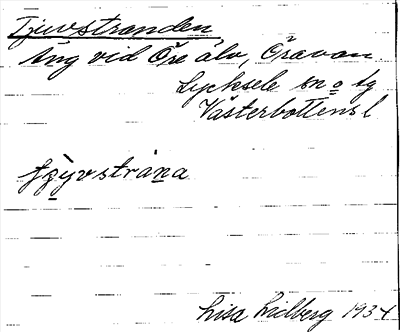 Tjuvstranden
Äng vid Öre älv, Öravan
Lycksele sn o tg
Västerbottens l
Lisa Lidberg 1934